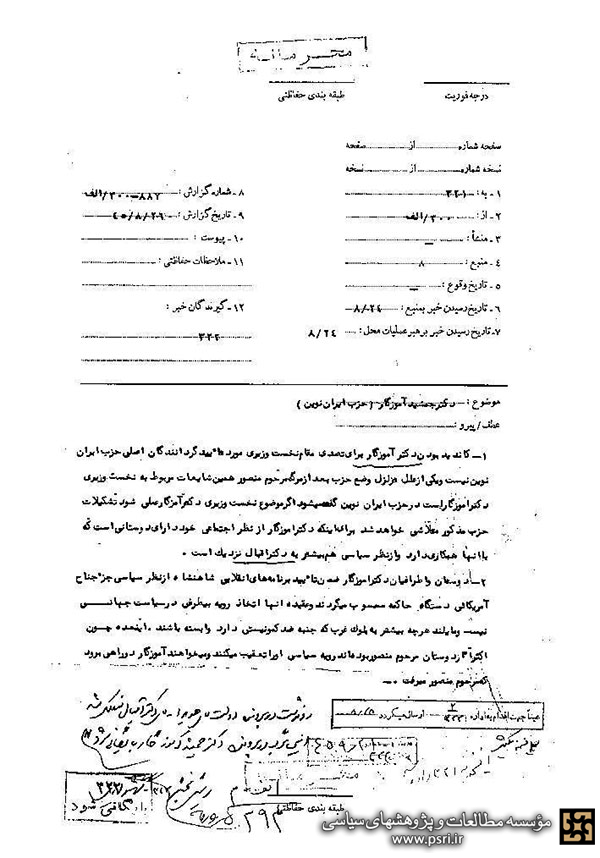 محرمانه
درجه فوریت
طبقه بندی حفاظتی
صفحه شماره از صفحه
نسخه شماره از نسخه
۱ـ به : ۳۲۱
۲ـ از : ۳۰۰/الف
۳ـ منشأ :
۴ـ منبع : ۸
۵ـ تاریخ وقوع :
۶ـ تاریخ رسیدن خبر بمنبع : ۸/۲۴
۷ـ تاریخ رسیدن خبر برهبر عملیات محل : ۸/۲۴
۸ـ شماره گزارش : ۳۰۰-۸۸۷/الف
۹ـ تاریخ گزارش : ۴۵/۸/۲۶
۱۰ـ پیوست :
۱۱ـ ملاحظات حفاظتی :
۱۲ـ گیرندگان خبر :
۳۲۲
موضوع : دکتر جمشید آموزگار (حزب ایران نوین)
عطف / پیرو :
۱ـ کاندید بودن دکتر آموزگار برای تصدی مقام نخست وزیری مورد تأیید گردانندگان اصلی حزب ایران
نوین نیست و یکی از علل تزلزل وضع حزب بعد از مرگ مرحوم منصور همین شایعات مربوط به نخست وزیری
دکتر آموزگار است در حزب ایران نوین گفته میشود اگر موضوع نخست وزیری دکتر آموزگار عملی شود تشکیلات
حزب مذکور متلاشی خواهد شد برای اینکه دکتر آموزگار از نظر اجتماعی خود دارای دوستانی است که
با آنها همکاری دارد و از نظر سیاسی هم بیشتر به دکتر اقبال نزدیک است .
۲ـ دوستان و اطرافیان دکتر آموزگار ضمن تأیید برنامه های انقلابی شاهنشاه از نظر سیاسی جزء جناح
آمریکائی دستگاه حاکمه محسوب میگردند و عقیده آنها اتخاذ رویه بیطرفی در سیاست جهانی
نیست و مایلند هرچه بیشتر به بلوک غرب که جنبه ضد کمونیستی دارد وابسته باشند . این عده چون
اکثراً از دوستان مرحوم منصور بوده اند رویه سیاسی او را تعقیب میکنند و میخواهند آموزگار در راهی برود
که مرحوم منصور میرفت .
عیناً جهت اقدام به اداره ارسال میگردد
طبقه بندی حفاظتی
بایگانی شود
مؤسسه مطالعات و پژوهشهای سیاسی
www.psri.ir